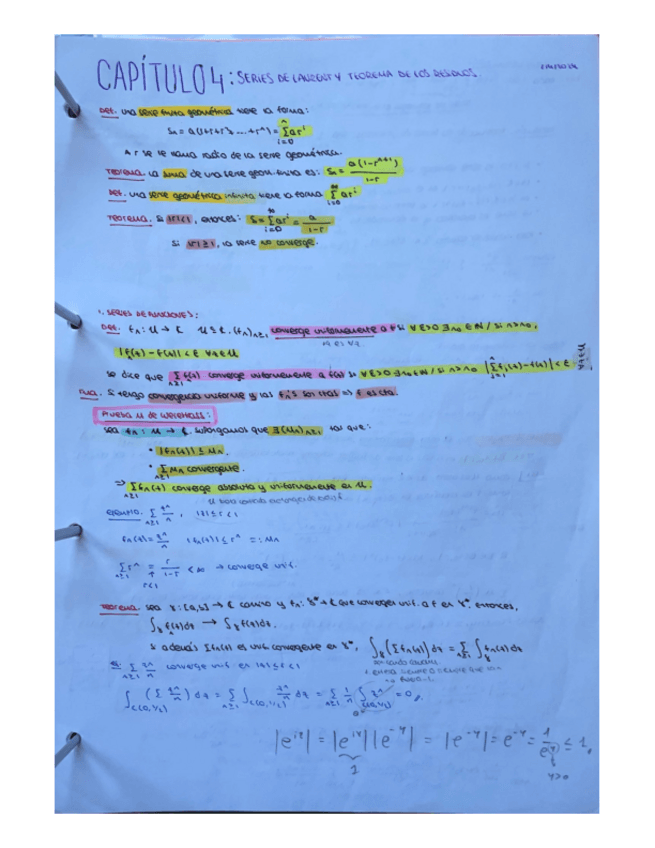 CAPÍTULO 4: SERIES DE LAURENT Y TEOREMA DE LOS RESIDUOS.
Def. una serie finita geométrica tiene la forma:
Sn = a(1+r+r²+...+r^n) = Σ_{i=0}^{n} ar^i
A r se le llama radio de la serie geométrica.
Teorema. La suma de una serie geom. finita es: Sn = a(1-r^{n+1})/(1-r)
Def. una serie geométrica infinita tiene la forma Σ_{i=0}^{∞} ar^i
Teorema. Si |r|<1, entonces: S = Σ_{i=0}^{∞} ar^i = a/(1-r)
Si |r|≥1, la serie no converge.
1. SERIES DE FUNCIONES:
Def. fn: U → ℂ U⊆ℂ. (fn)n≥1 converge uniformemente a f si ∀ε>0 ∃n0∈ℕ / si n>n0,
|fn(z)-f(z)|<ε ∀z∈U
se dice que Σ_{n≥1} fn(z) converge uniformemente a f(z) si ∀ε>0 ∃n0∈ℕ / si n>n0 |Σ_{j=1}^{n} fj(z)-f(z)|<ε ∀z∈U
Si tengo convergencia uniforme y las fn's son ctas ⇒ f es cta.
Prueba M de Weierstrass:
Sea fn: U → ℂ. Supongamos que ∃(Mn)n≥1 tal que:
• |fn(z)| ≤ Mn.
• Σ_{n≥1} Mn convergente.
⇒ Σ_{n≥1} fn(z) converge absoluta y uniformemente en U.
EJEMPLO. Σ_{n≥1} z^n/n, |z|≤r<1
fn(z) = z^n/n |fn(z)| ≤ r^n =: Mn
Σ_{n≥1} r^n = r/(1-r) < ∞ → converge unif.
r<1
Teorema. Sea γ: [a,b] → ℂ camino y fn: γ* → ℂ que converge unif. a f en γ*, entonces,
∫_γ fn(z)dz → ∫_γ f(z)dz.
Si además Σfn(z) es unif. convergente en γ*, ∫_γ (Σfn(z))dz = Σ_{n≥1} ∫_γ fn(z)dz
Ej. Σ_{n≥1} z^n/n converge unif. en |z|≤r<1
∫_{C(0,1/2)} (Σ z^n/n) dz = Σ_{n≥1} ∫_{C(0,1/2)} z^n/n dz = Σ_{n≥1} 1/n ∫_{C(0,1/2)} z^n = 0,
|e^{iz}| = |e^{ix}||e^{-y}| = |e^{-y}| = e^{-y} = 1/e^y ≤ 1,
1
y>0